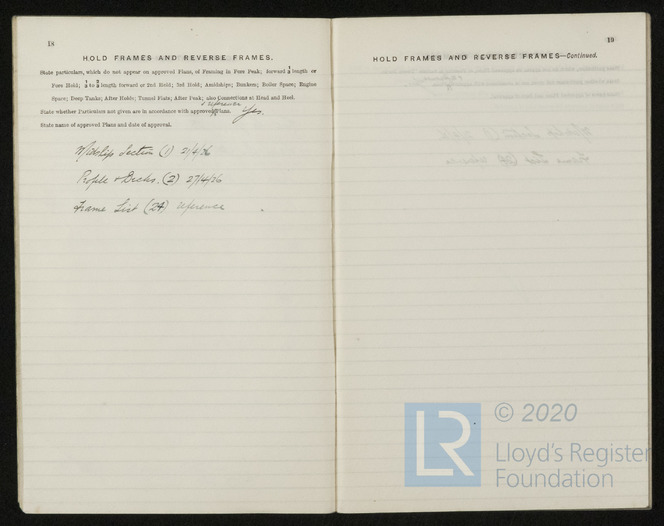 18
HOLD FRAMES AND REVERSE FRAMES.
State particulars, which do not appear on approved Plans, of Framing in Fore Peak; forward ¼ length or
Fore Hold; to length forward or 2nd Hold; 3rd Hold; Amidships; Bunkers; Boiler Space; Engine
Space; Deep Tanks; After Holds; Tunnel Flats; After Peak; also Connections at Head and Heel.
& reference
State whether Particulars not given are in accordance with approved Plans. Yes.
State name of approved Plans and date of approval.
Midship Section (1) 21/4/26
Profile & Decks. (2) 27/4/26
Frame List (24) reference
19
HOLD FRAMES AND REVERSE FRAMES—Continued.
LR
© 2020
Lloyd's Register
Foundation